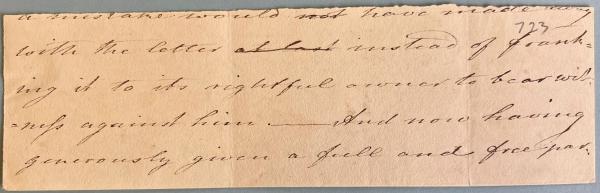 a mistake would not have made away
723
with the letter at last instead of frank=
ing it to its rightful owner to bear wit-
=ness against him. — And now having
generously given a full and free par-